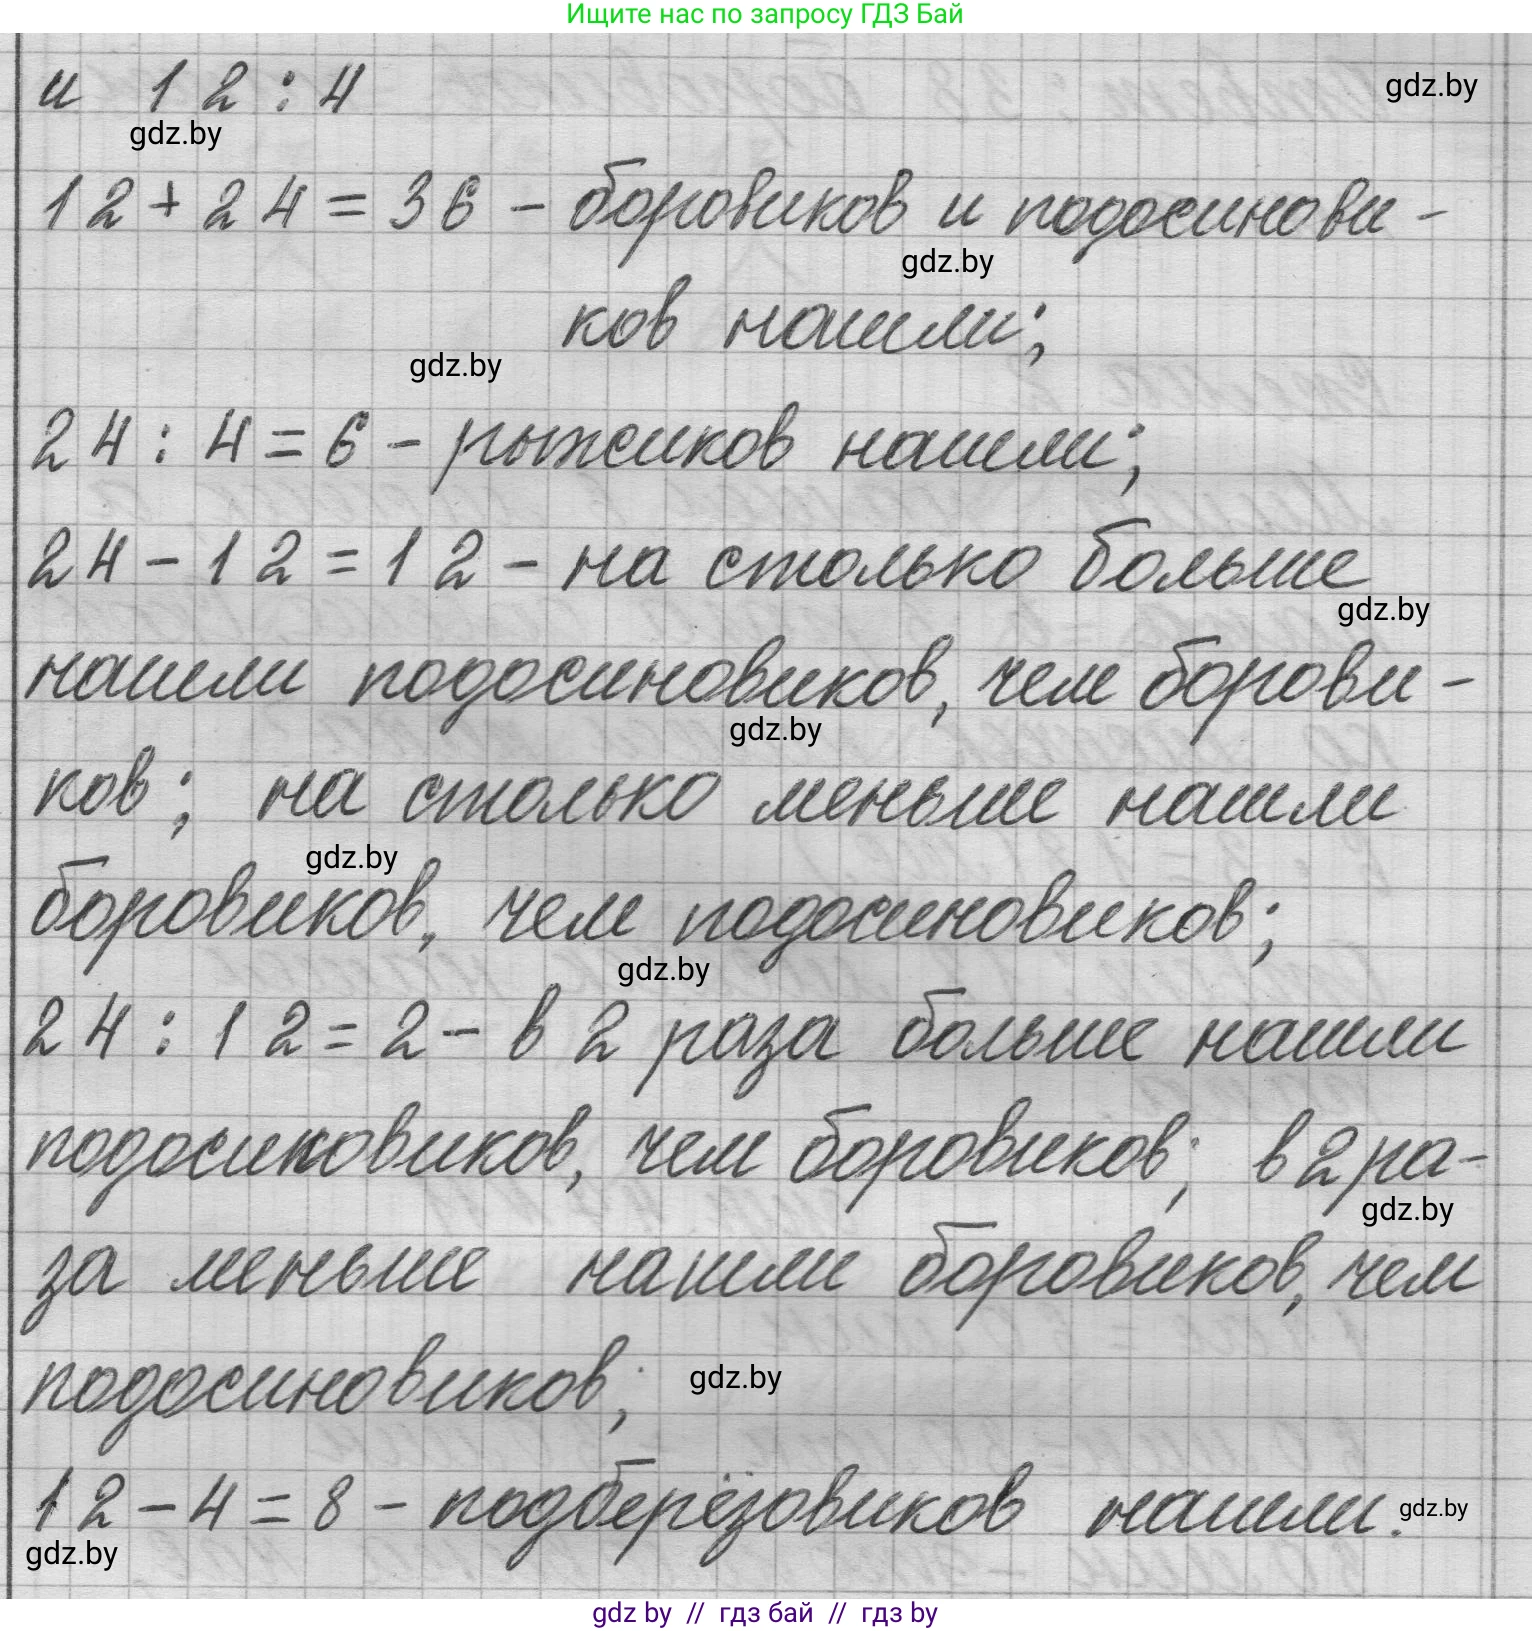 Ищите нас по запросу ГДЗ Бай
и 12:4
gdz.by
gdz.by
12+24=36 - боровиков и подосинови-
gdz.by
ков нашли;
gdz.by
24:4=6 - рыжиков нашли;
24-12=12 - на столько больше
gdz.by
нашли подосиновиков, чем борови-
gdz.by
ков; на столько меньше нашли
gdz.by
боровиков, чем подосиновиков;
gdz.by
24:12=2 - в 2 раза больше нашли
подосиновиков, чем боровиков; в 2 ра-
gdz.by
за меньше нашли боровиков, чем
подосиновиков;
gdz.by
12-4=8 - подберёзовиков нашли.
gdz.by
gdz.by
gdz by // гдз бай // гдз by